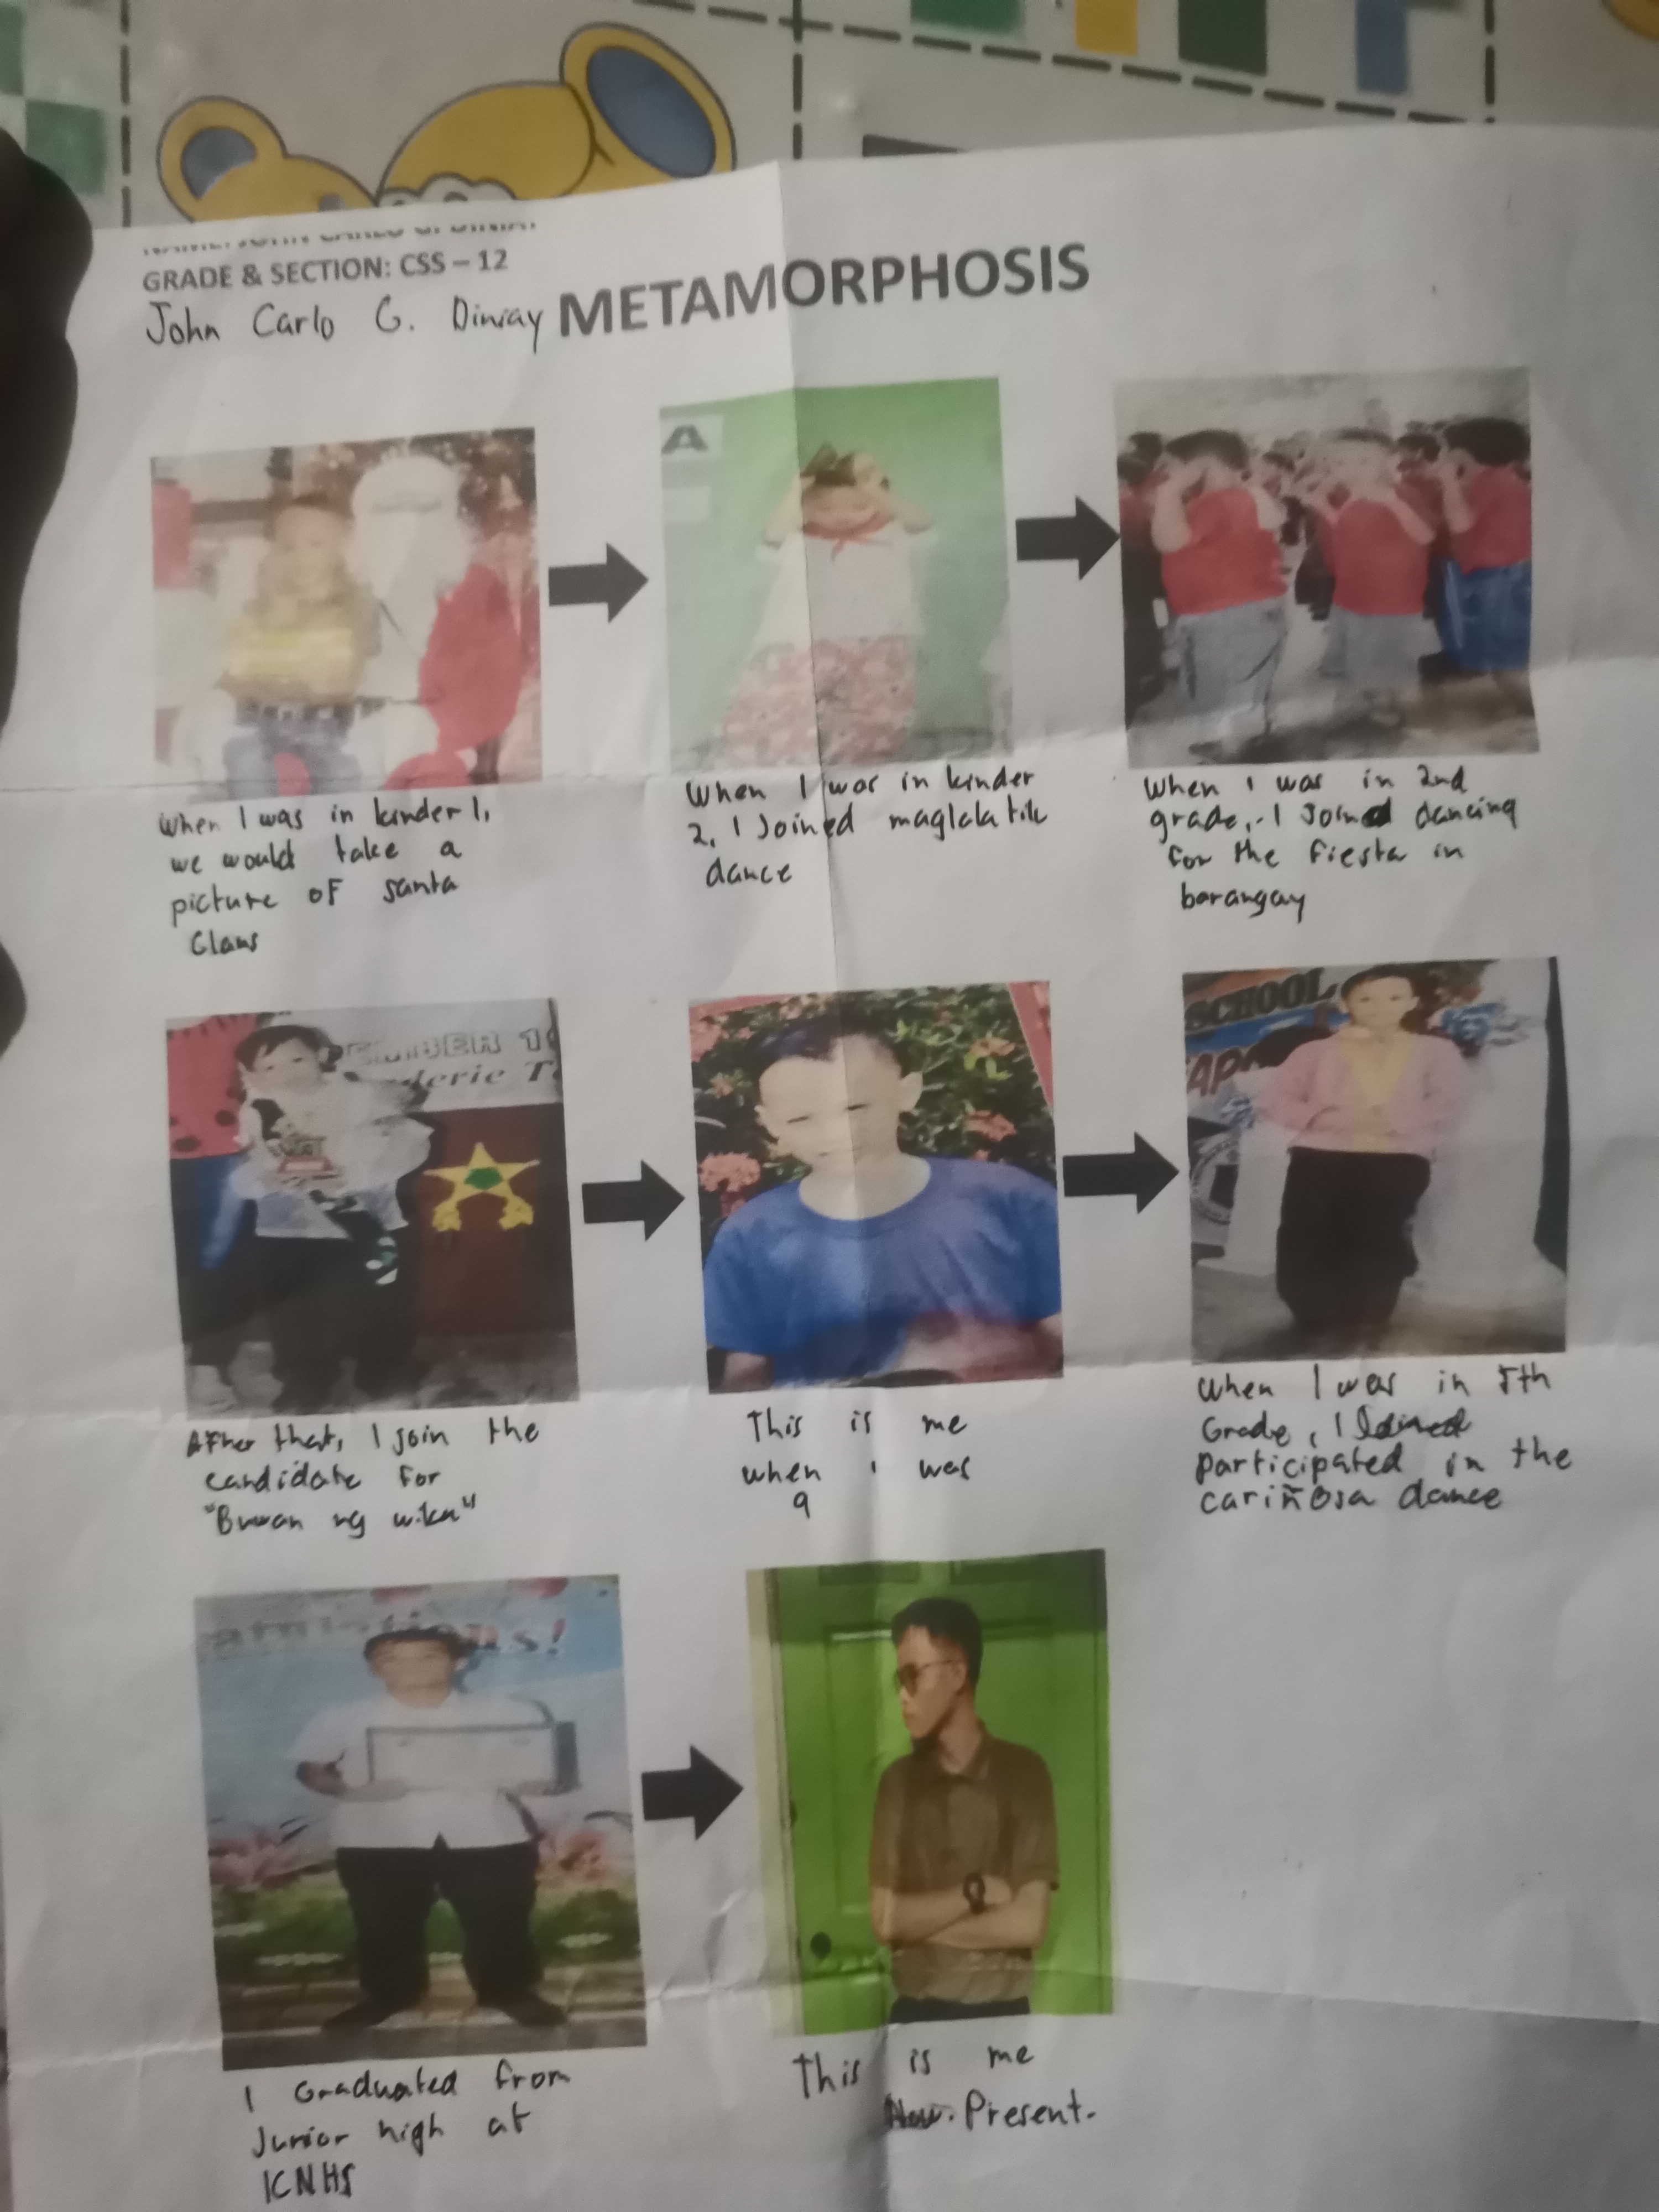 GRADE & SECTION: CSS – 12
John Carlo G. Diniay
METAMORPHOSIS
A
When I was in kinder 1,
we would take a
picture of santa
Claus
When I was in kinder
2, I Joined maglalatik
dance
When I was in 2nd
grade, I Joined dancing
for the fiesta in
barangay
SCHOOL
After that, I join the
candidate for
"Buwan ng wika"
This is me
when I was
9
When I was in 5th
Grade, I
participated in the
cariñosa dance
I Graduated from
Junior high at
ICNHS
This is me
Now. Present.